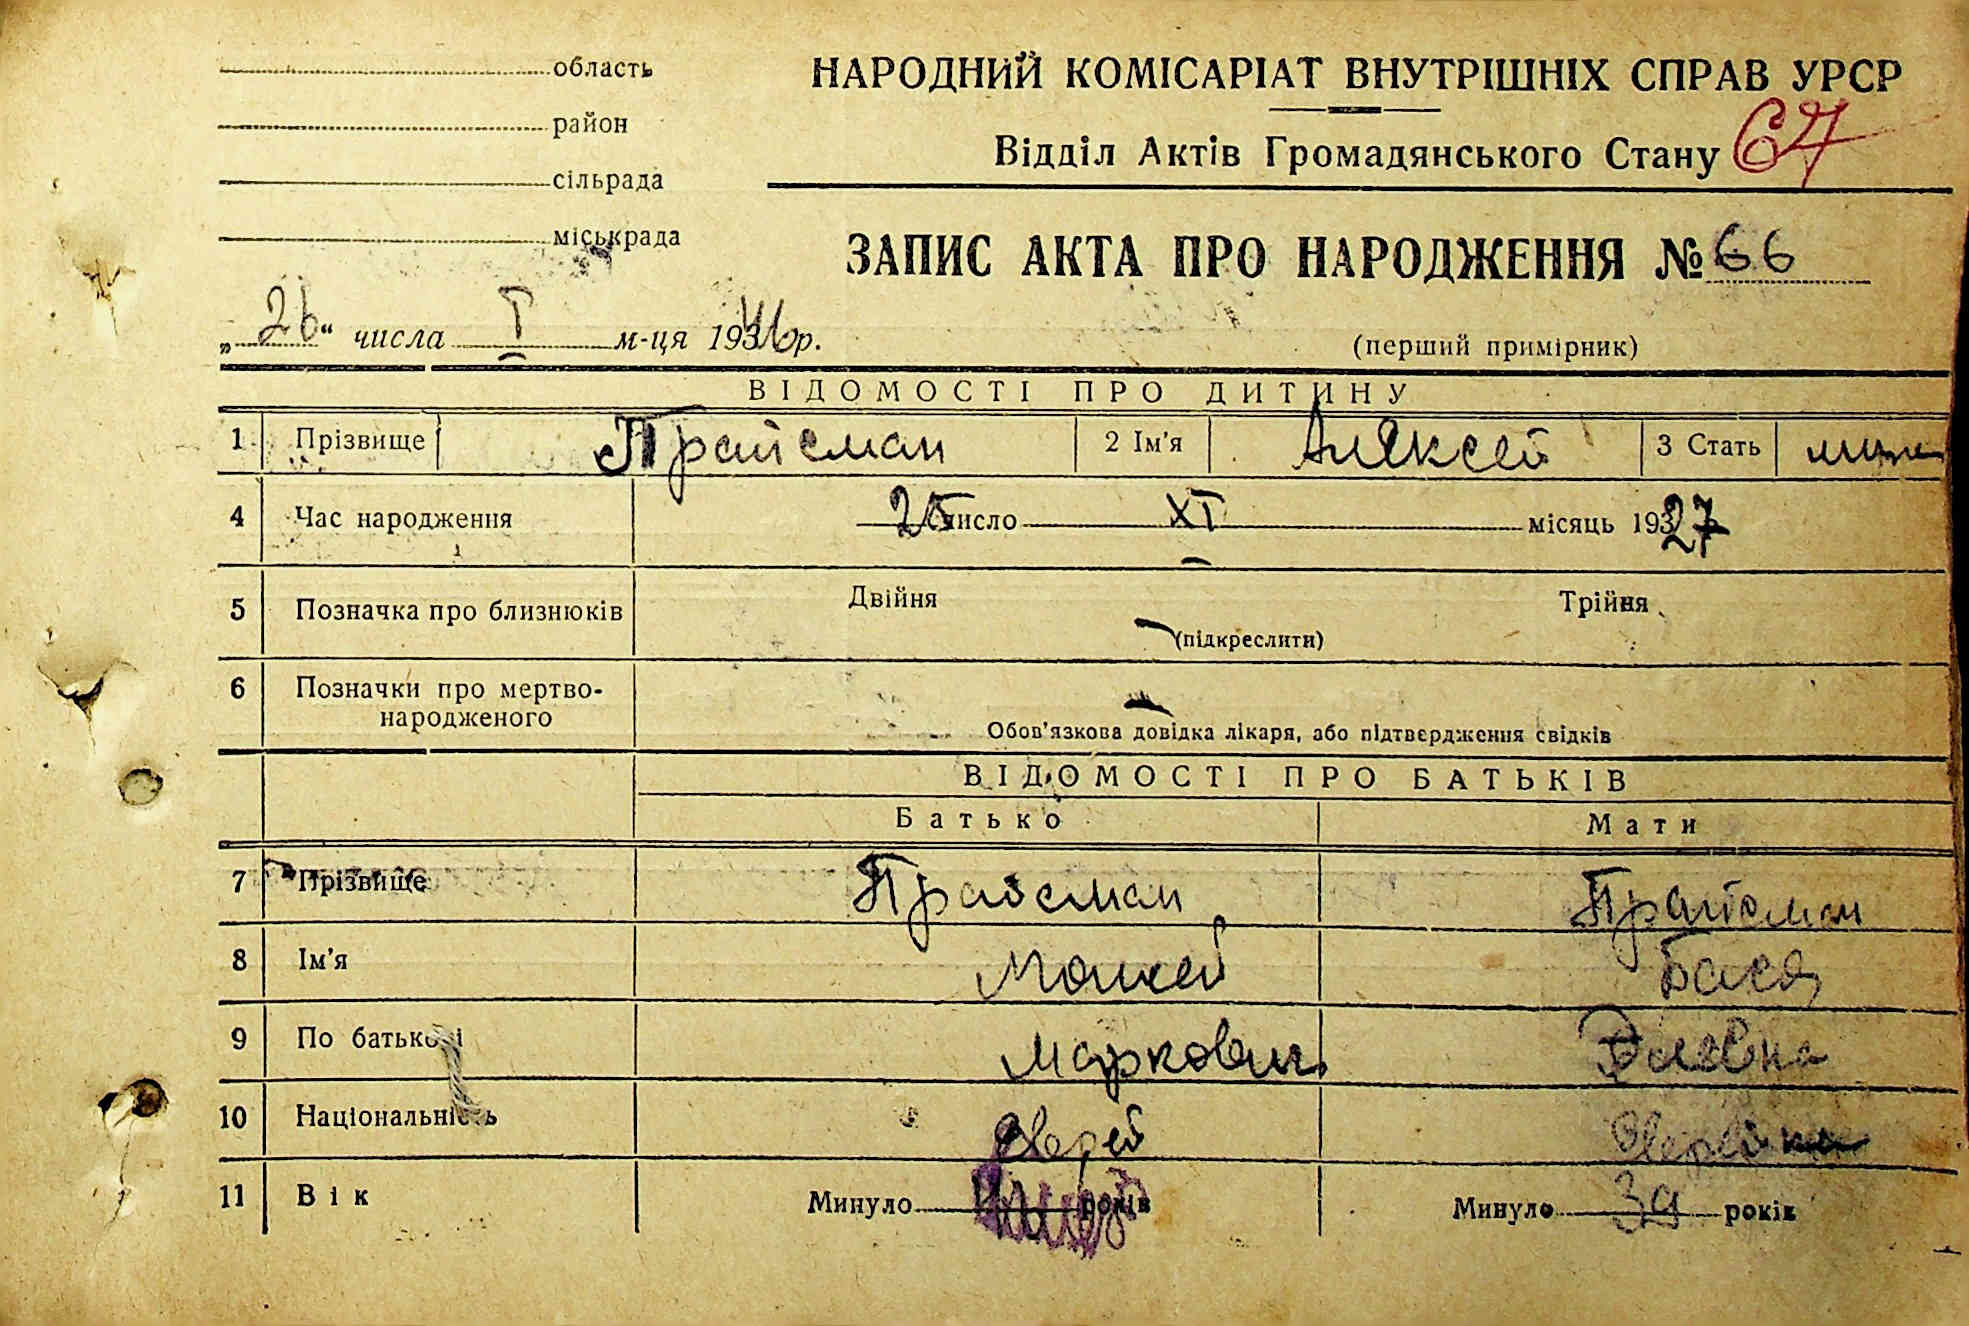 область
район
сільрада
міськрада
НАРОДНИЙ КОМІСАРІАТ ВНУТРІШНІХ СПРАВ УРСР
Відділ Актів Громадянського Стану 67
ЗАПИС АКТА ПРО НАРОДЖЕННЯ № 66
„26“ числа I м-ця 1946 р.
(перший примірник)
ВІДОМОСТІ ПРО ДИТИНУ
1 Прізвище Прайсман 2 Ім'я Алексей 3 Стать муж
4 Час народження 25 число XI місяць 1927
5 Позначка про близнюків Двійня Трійня
(підкреслити)
6 Позначки про мертво-
народженого
Обов'язкова довідка лікаря, або підтвердження свідків
ВІДОМОСТІ ПРО БАТЬКІВ
Батько Мати
7 Прізвище Прайсман Прайсман
8 Ім'я Моисей Бася
9 По батькові Маркович
10 Національність Еврей Еврейка
11 Вік Минуло років Минуло 39 років